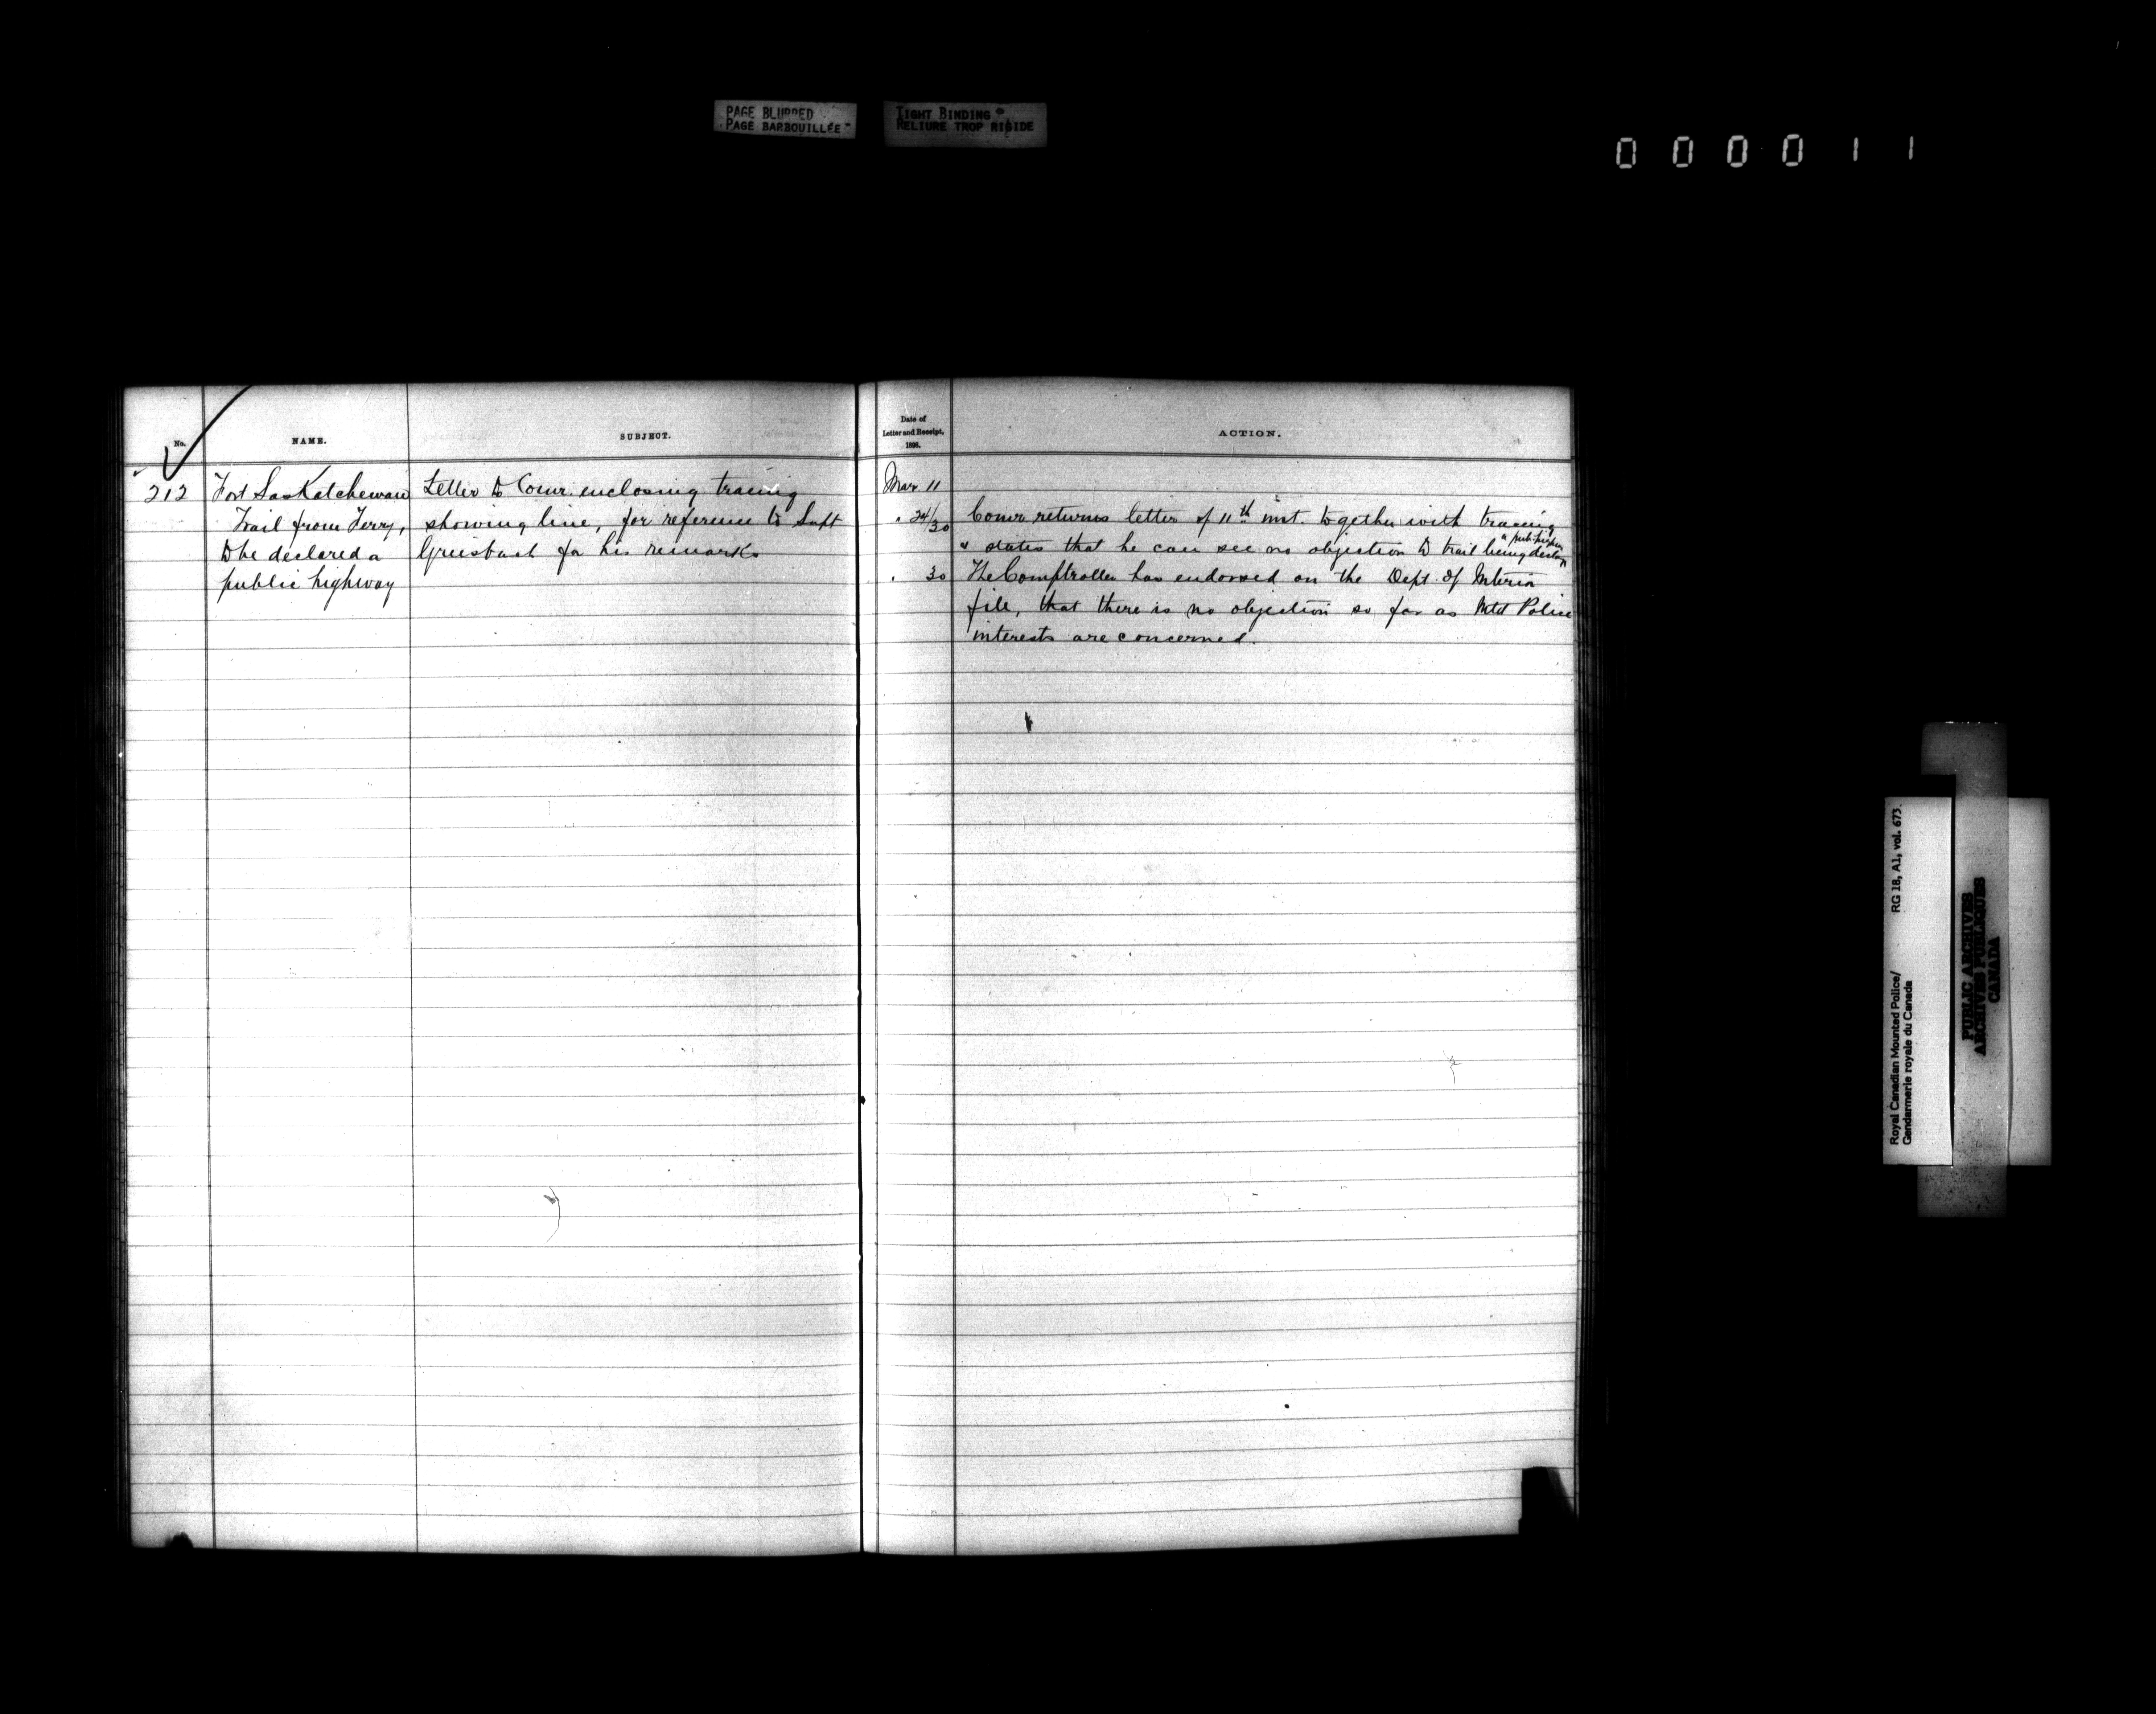 PAGE BLURRED
PAGE BARBOUILLÉE
TIGHT BINDING
RELIURE TROP RIGIDE
000011
No.
NAME.
SUBJECT.
212
Fort Saskatchewan
Trail from Ferry,
to be declared a
public highway
Letter to Comr. enclosing tracing
showing line, for reference to Supt
Griesbach for his remarks
Date of
Letter and Receipt,
1898.
ACTION.
Mar 11
" 24/30
Comr returns letter of 11th inst. together with tracing
& states that he can see no objection to trail being
" 30
The Comptroller has endorsed on the Dept. of Interior
file, that there is no objection so far as Mtd Police
interests are concerned.
Royal Canadian Mounted Police/
Gendarmerie royale du Canada
RG 18, A1, vol. 673.
PUBLIC ARCHIVES
ARCHIVES PUBLIQUES
CANADA